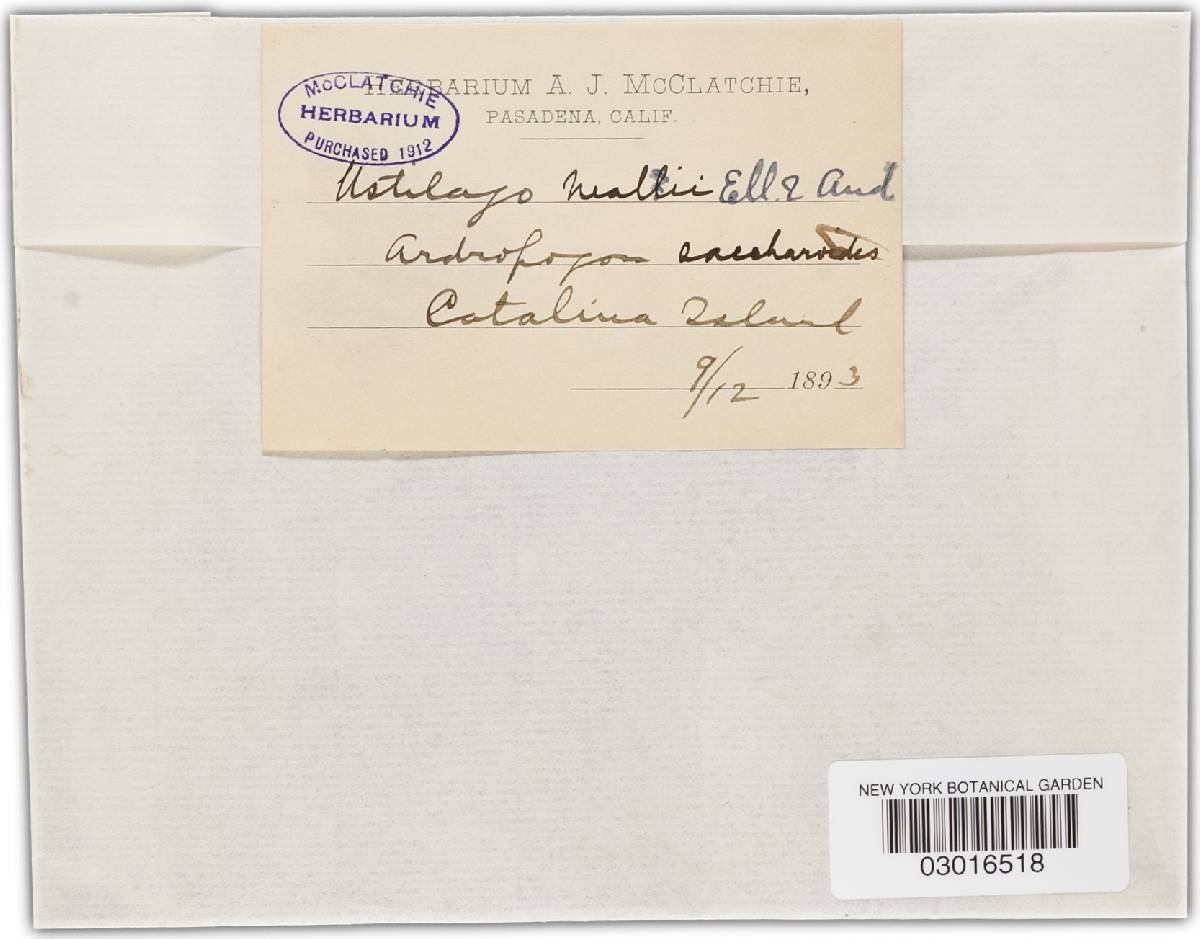 HERBARIUM A. J. MCCLATCHIE,
PASADENA, CALIF.
MCCLATCHIE
HERBARIUM
PURCHASED 1912
Ustilago nealii Ell. & And
Andropogon saccharoides
Catalina Island
9/12 1893
NEW YORK BOTANICAL GARDEN
03016518